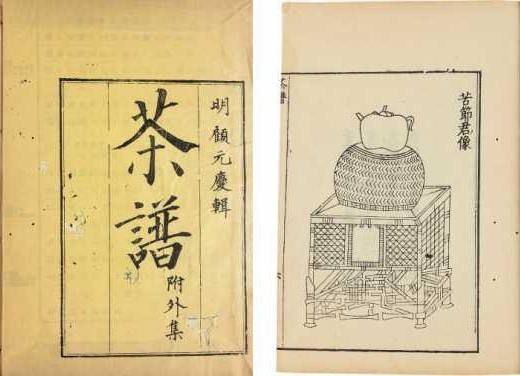 明顧元慶輯
茶譜
附外集
苦節君像